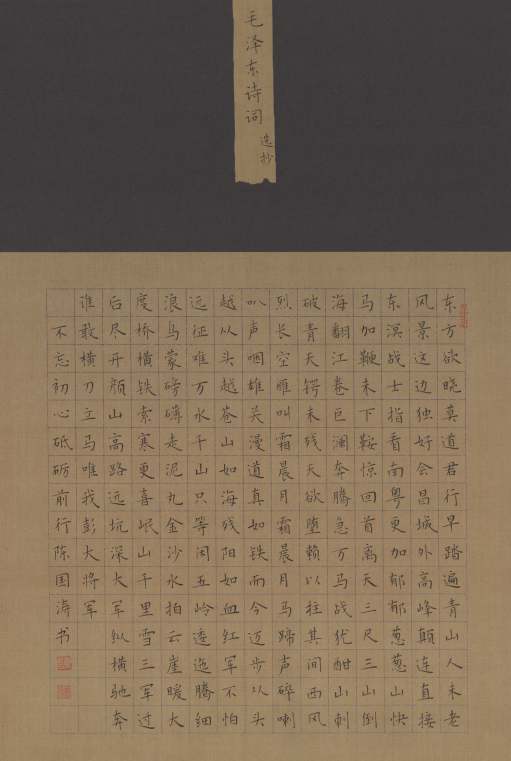 毛泽东诗词
选抄
东方欲晓莫道君行早踏遍青山人未老
风景这边独好会昌城外高峰颠连直接
东溟战士指看南粤更加郁郁葱葱山快
马加鞭未下鞍惊回首离天三尺三山倒
海翻江卷巨澜奔腾急万马战犹酣山刺
破青天锷未残天欲堕赖以拄其间西风
烈长空雁叫霜晨月霜晨月马蹄声碎喇
叭声咽雄关漫道真如铁而今迈步从头
越从头越苍山如海残阳如血红军不怕
远征难万水千山只等闲五岭逶迤腾细
浪乌蒙磅礴走泥丸金沙水拍云崖暖大
度桥横铁索寒更喜岷山千里雪三军过
后尽开颜山高路远坑深大军纵横驰奔
谁敢横刀立马唯我彭大将军
不忘初心砥砺前行陈国涛书